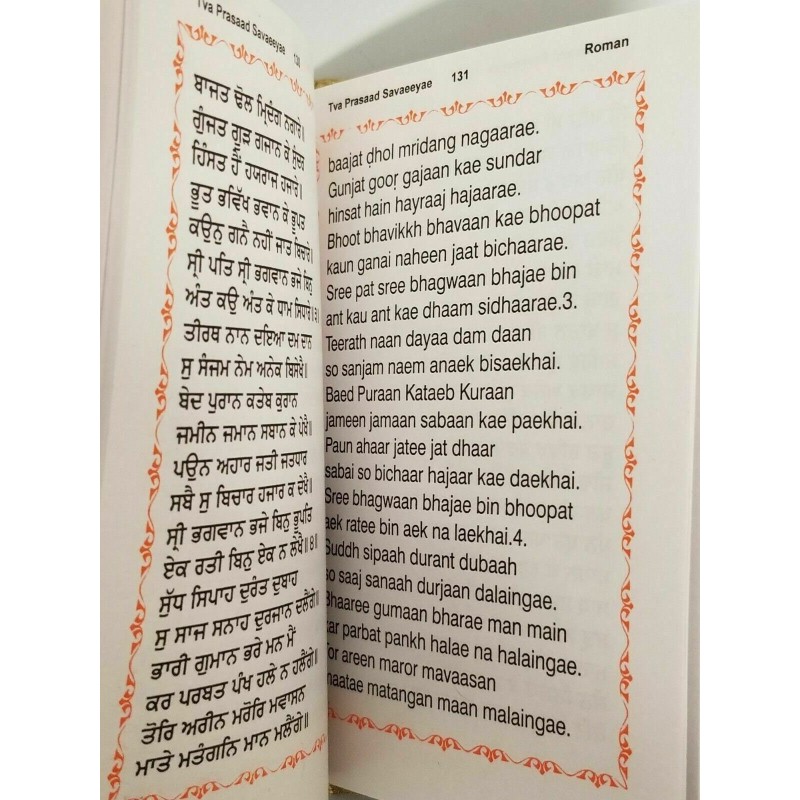 Tva Prasaad Savaeeyae 130
ਬਾਜਤ ਢੋਲ ਮ੍ਰਿਦੰਗ ਨਗਾਰੇ॥
ਗੁੰਜਤ ਗੂੜ ਗਜਾਨ ਕੇ ਸੁੰਦਰ
ਹਿੰਸਤ ਹੈਂ ਹਯਰਾਜ ਹਜਾਰੇ।
ਭੂਤ ਭਵਿੱਖ ਭਵਾਨ ਕੇ ਭੂਪਤ
ਕਉਨੁ ਗਨੈ ਨਹੀਂ ਜਾਤ ਬਿਚਾਰੇ।
ਸ੍ਰੀ ਪਤਿ ਸ੍ਰੀ ਭਗਵਾਨ ਭਜੇ ਬਿਨੁ
ਅੰਤ ਕਉ ਅੰਤ ਕੇ ਧਾਮ ਸਿਧਾਰੇ॥੩॥
ਤੀਰਥ ਨਾਨ ਦਇਆ ਦਮ ਦਾਨ
ਸੁ ਸੰਜਮ ਨੇਮ ਅਨੇਕ ਬਿਸੇਖੈ॥
ਬੇਦ ਪੁਰਾਨ ਕਤੇਬ ਕੁਰਾਨ
ਜਮੀਨ ਜਮਾਨ ਸਬਾਨ ਕੇ ਪੇਖੈ॥
ਪਉਨ ਅਹਾਰ ਜਤੀ ਜਤਧਾਰ
ਸਬੈ ਸੁ ਬਿਚਾਰ ਹਜਾਰ ਕ ਦੇਖੈ॥
ਸ੍ਰੀ ਭਗਵਾਨ ਭਜੇ ਬਿਨੁ ਭੂਪਤਿ
ਏਕ ਰਤੀ ਬਿਨੁ ਏਕ ਨ ਲੇਖੈ॥੪॥
ਸੁੱਧ ਸਿਪਾਹ ਦੁਰੰਤ ਦੁਬਾਹ
ਸੁ ਸਾਜ ਸਨਾਹ ਦੁਰਜਾਨ ਦਲੈਂਗੇ॥
ਭਾਰੀ ਗੁਮਾਨ ਭਰੇ ਮਨ ਮੈਂ
ਕਰ ਪਰਬਤ ਪੰਖ ਹਲੇ ਨ ਹਲੈਂਗੇ॥
ਤੋਰਿ ਅਰੀਨ ਮਰੋਰਿ ਮਵਾਸਨ
ਮਾਤੇ ਮਤੰਗਨਿ ਮਾਨ ਮਲੈਂਗੇ॥
Tva Prasaad Savaeeyae 131 Roman
baajat ḍhol mridang nagaarae.
Gunjat gooṛ gajaan kae sundar
hinsat hain hayraaj hajaarae.
Bhoot bhavikkh bhavaan kae bhoopat
kaun ganai naheen jaat bichaarae.
Sree pat sree bhagwaan bhajae bin
ant kau ant kae dhaam sidhaarae.3.
Teerath naan dayaa dam daan
so sanjam naem anaek bisaekhai.
Baed Puraan Kataeb Kuraan
jameen jamaan sabaan kae paekhai.
Paun ahaar jatee jat dhaar
sabai so bichaar hajaar kae daekhai.
Sree bhagwaan bhajae bin bhoopat
aek ratee bin aek na laekhai.4.
Suddh sipaah durant dubaah
so saaj sanaah durjaan dalaingae.
Bhaaree gumaan bharae man main
kar parbat pankh halae na halaingae.
Tor areen maror mavaasan
maatae matangan maan malaingae.